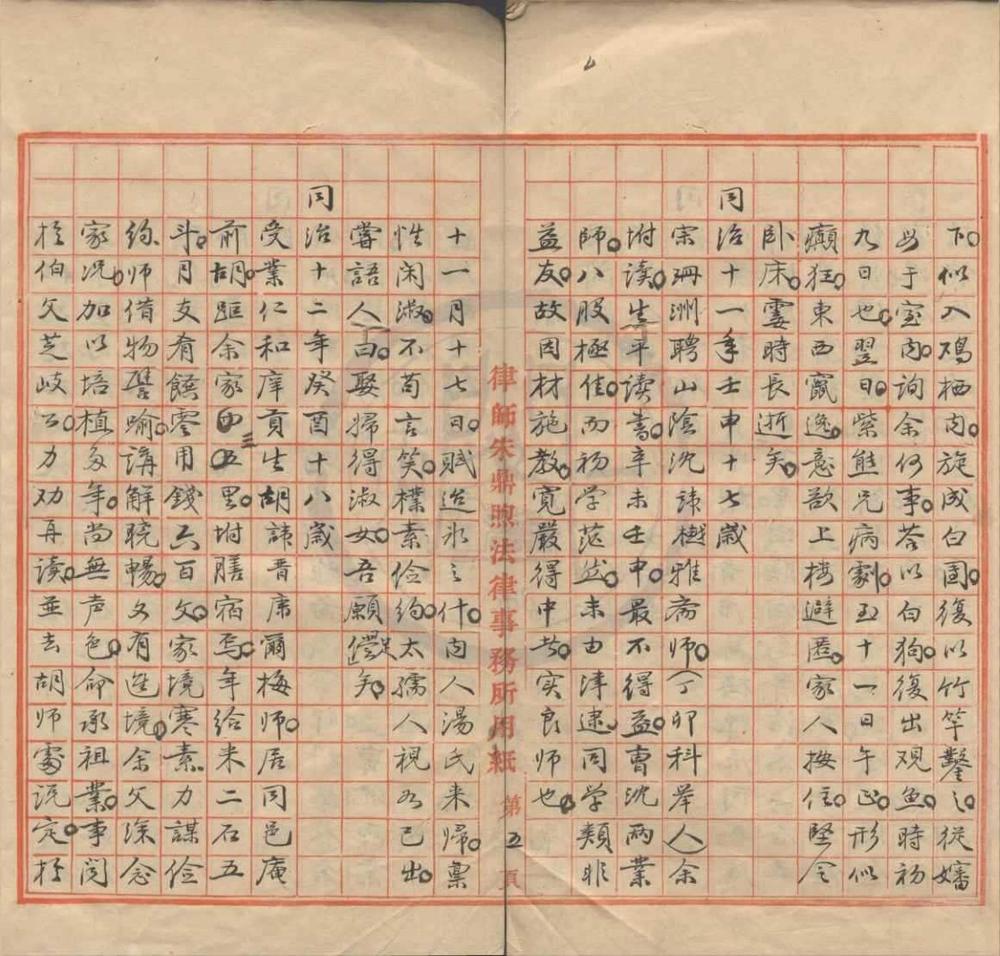 下似入鳮栖内旋成白圈復以竹竿鑿之從嬸
母于室内詢余何事荅以白狗復出观魚時初
九日也翌日紫熊兄病劇至十一日午正形似
癲狂東西竄逸意欲上楼避匿家人按住堅令
卧床霎時長逝矣
同治十一年壬申十七歲
宗珊洲聘山陰沈諱樾雅齋师（丁卯科举人）余
坿读生平读書辛未壬申最不得益曹沈兩業
師八股極佳而初学茫然未由津逮同学類非
益友故因材施教寬嚴得中者实良师也
律師朱鼎煦法律事務所用紙 第五頁
十一月十七日賦迨氷之什内人湯氏来歸稟
性闲淑不苟言笑樸素俭約太孺人視如己出
嘗語人曰娶婦得淑女吾願足矣
同治十二年癸酉十八歲
受業仁和庠貢生胡諱晋席爾梅师居同邑庵
前胡距余家四五里坿膳宿焉年给米二石五
斗月支有餘零用錢六百文家境寒素力謀俭
约师借物譬喻講解暁暢文有進境余父深念
家况加以培植多年尚無声色命承祖業事閲
於伯父芝岐公力劝再读並去胡师處说定於